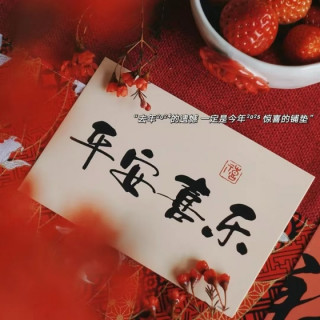 “去年²⁰²⁴的遗憾 一定是今年²⁰²⁵ 惊喜的铺垫”
平安喜乐